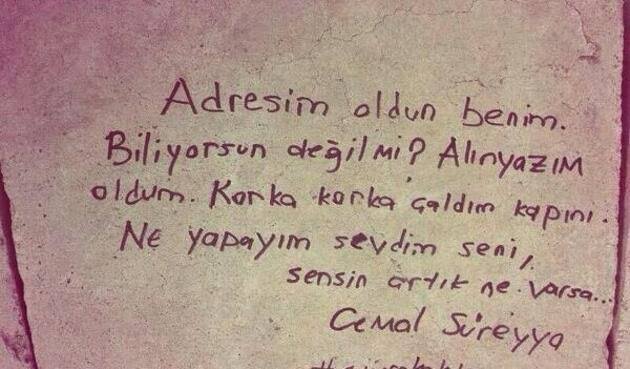 Adresim oldun benim.
Biliyorsun değilmi? Alınyazım
oldum. Korka korka çaldım kapını.
Ne yapayım sevdim seni,
sensin artık ne varsa...
Cemal Süreyya